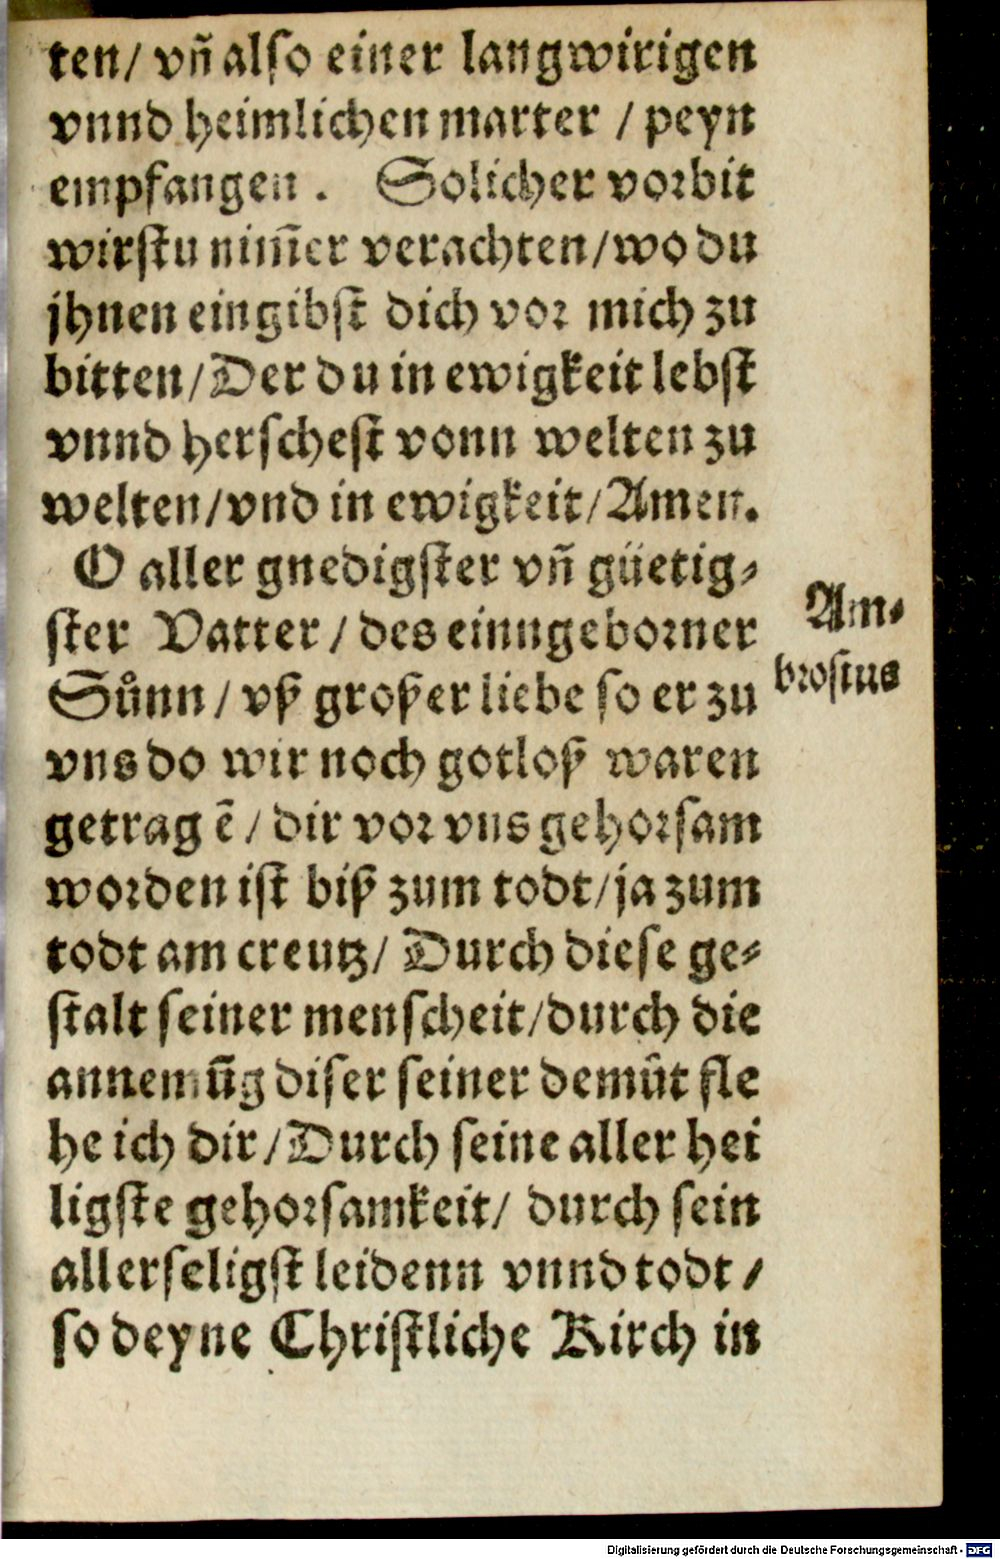 ten/ vn̄ also einer langwirigen
vnnd heimlichen marter / peyn
empfangen . Solicher vorbit
wirstu nim̄er verachten/wo du
jhnen eingibst dich vor mich zu
bitten/Der du in ewigkeit lebst
vnnd herschest vonn welten zu
welten/vnd in ewigkeit/Amen.
O aller gnedigster vn̄ güetig-
ster Vatter / des einngeborner
Sůnn / vß großer liebe so er zu
vns do wir noch gotloß waren
getragē / dir vor vns gehorsam
worden ist biß zum todt/ja zum
todt am creutz/ Durch diese ge-
stalt seiner menscheit/durch die
annemūg diser seiner demůt fle
he ich dir/Durch seine aller hei
ligste gehorsamkeit/ durch sein
allerseligst leidenn vnnd todt /
so deyne Christliche Kirch in
Am-
brosius
Digitalisierung gefördert durch die Deutsche Forschungsgemeinschaft - DFG